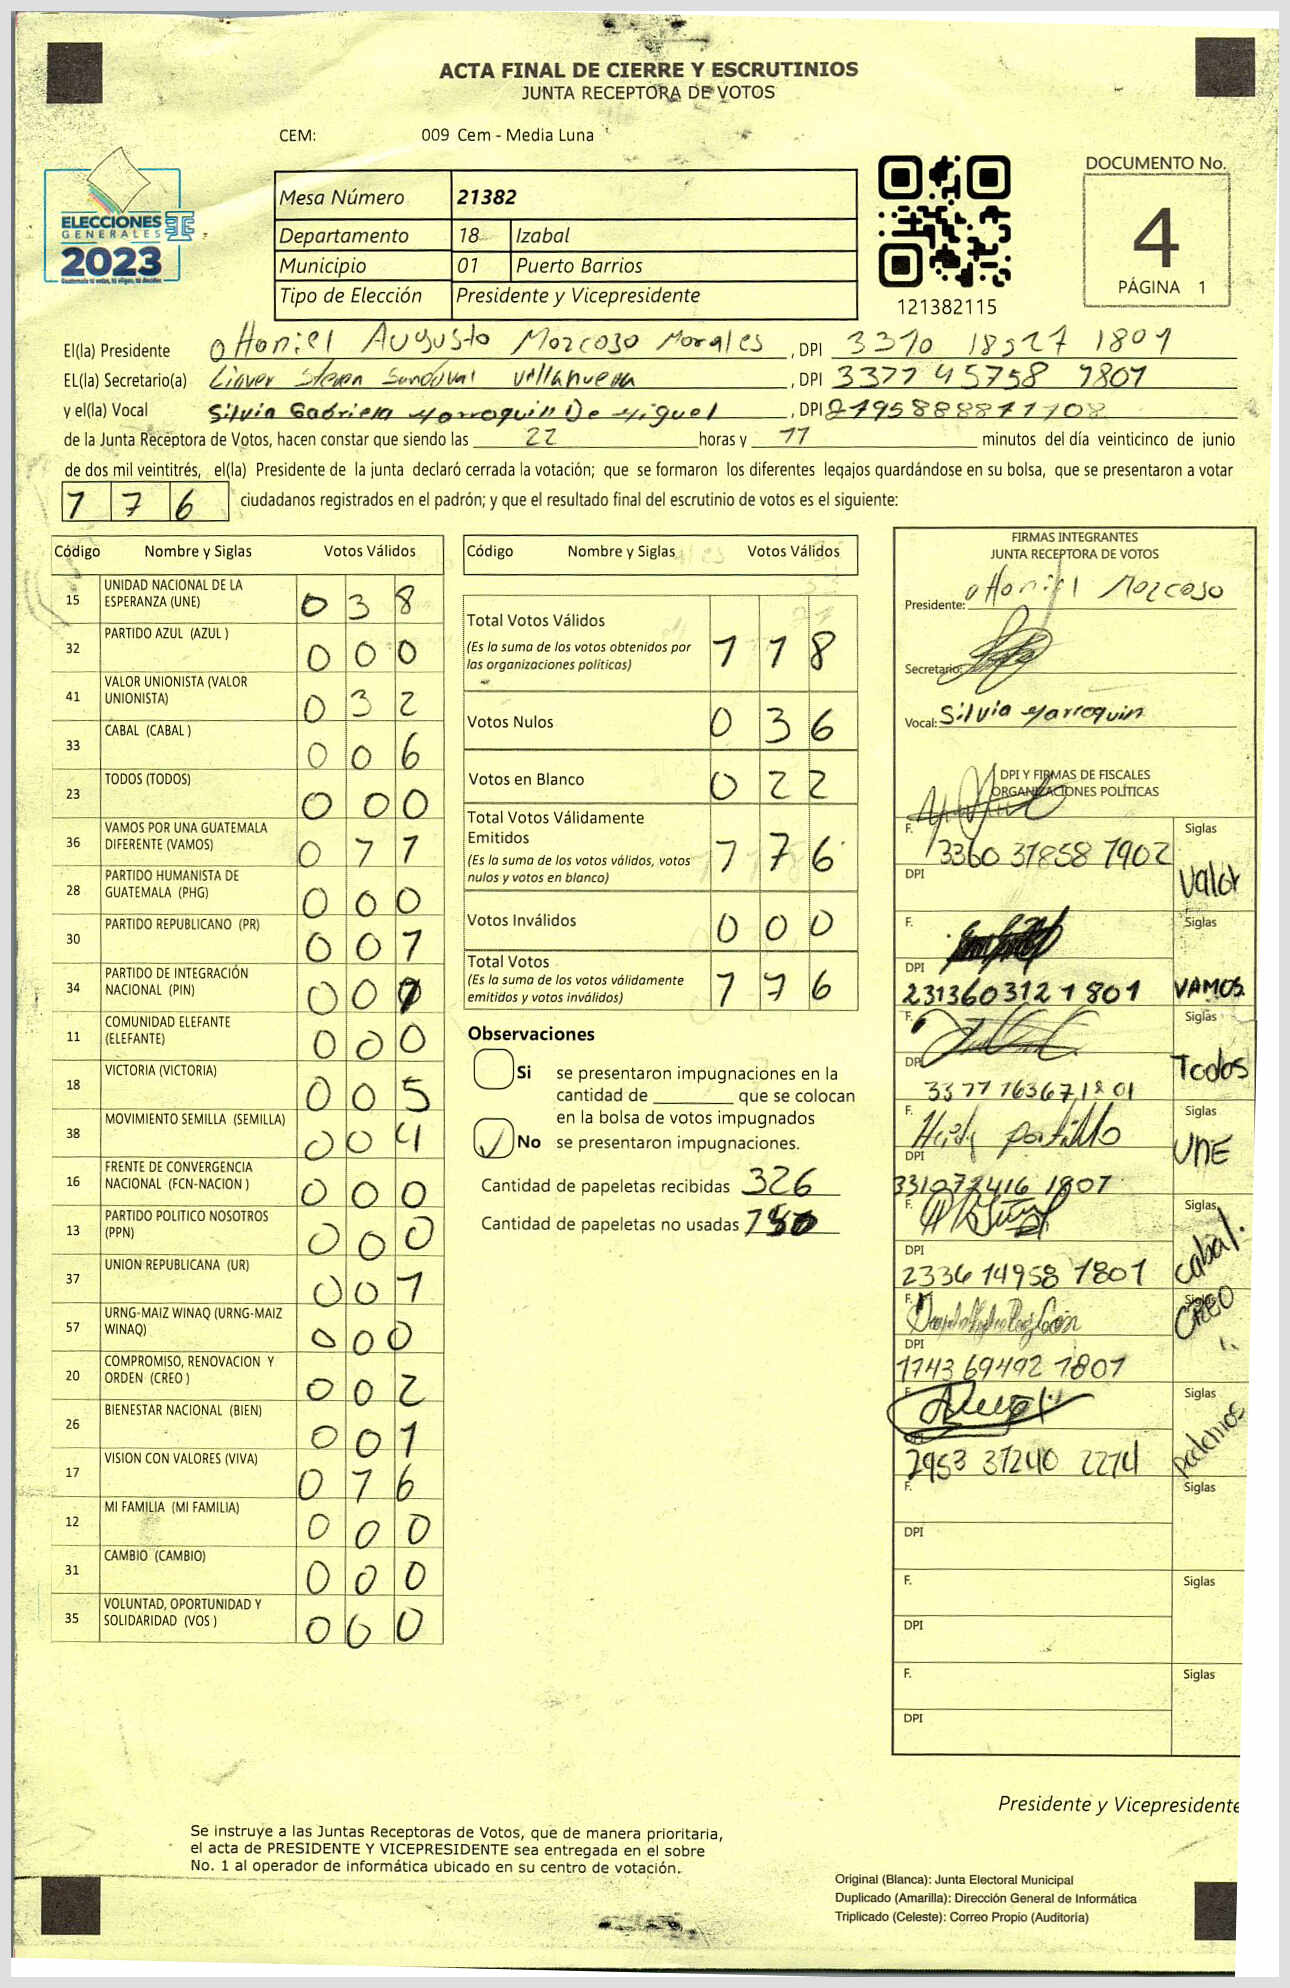 ACTA FINAL DE CIERRE Y ESCRUTINIOS
JUNTA RECEPTORA DE VOTOS
CEM: 009 Cem - Media Luna
DOCUMENTO No.
4
PÁGINA 1
ELECCIONES
GENERALES
2023
Mesa Número 21382
Departamento 18 Izabal
Municipio 01 Puerto Barrios
Tipo de Elección Presidente y Vicepresidente
121382115
El(la) Presidente Ottoniel Augusto Morales , DPI
EL(la) Secretario(a) Steven Sandoval Villanueva , DPI 3377 45758 1801
y el(la) Vocal Silvia Gabriela Marroquin De Miguel , DPI
de la Junta Receptora de Votos, hacen constar que siendo las 22 horas y 11 minutos del día veinticinco de junio
de dos mil veintitrés, el(la) Presidente de la junta declaró cerrada la votación; que se formaron los diferentes legajos guardándose en su bolsa, que se presentaron a votar
1 7 6 ciudadanos registrados en el padrón; y que el resultado final del escrutinio de votos es el siguiente:
Código Nombre y Siglas Votos Válidos
15 UNIDAD NACIONAL DE LA
ESPERANZA (UNE) 0 3 8
32 PARTIDO AZUL (AZUL ) 0 0 0
41 VALOR UNIONISTA (VALOR
UNIONISTA) 0 3 2
33 CABAL (CABAL ) 0 0 6
23 TODOS (TODOS) 0 0 0
36 VAMOS POR UNA GUATEMALA
DIFERENTE (VAMOS) 0 1 1
28 PARTIDO HUMANISTA DE
GUATEMALA (PHG) 0 0 0
30 PARTIDO REPUBLICANO (PR) 0 0 1
34 PARTIDO DE INTEGRACIÓN
NACIONAL (PIN) 0 0
11 COMUNIDAD ELEFANTE
(ELEFANTE) 0 0 0
18 VICTORIA (VICTORIA) 0 0 5
38 MOVIMIENTO SEMILLA (SEMILLA) 0 0 4
16 FRENTE DE CONVERGENCIA
NACIONAL (FCN-NACION ) 0 0 0
13 PARTIDO POLITICO NOSOTROS
(PPN) 0 0 0
37 UNION REPUBLICANA (UR) 0 0 1
57 URNG-MAIZ WINAQ (URNG-MAIZ
WINAQ) 0 0 0
20 COMPROMISO, RENOVACION Y
ORDEN (CREO ) 0 0 2
26 BIENESTAR NACIONAL (BIEN) 0 0 1
17 VISION CON VALORES (VIVA) 0 1 6
12 MI FAMILIA (MI FAMILIA) 0 0 0
31 CAMBIO (CAMBIO) 0 0 0
35 VOLUNTAD, OPORTUNIDAD Y
SOLIDARIDAD (VOS ) 0 0 0
Código Nombre y Siglas Votos Válidos
Total Votos Válidos 1 1 8
(Es la suma de los votos obtenidos por
las organizaciones políticas)
Votos Nulos 0 3 6
Votos en Blanco 0 2 2
Total Votos Válidamente
Emitidos 1 7 6
(Es la suma de los votos válidos, votos
nulos y votos en blanco)
Votos Inválidos 0 0 0
Total Votos 1 7 6
(Es la suma de los votos válidamente
emitidos y votos inválidos)
Observaciones
Si se presentaron impugnaciones en la
cantidad de que se colocan
en la bolsa de votos impugnados
No se presentaron impugnaciones.
Cantidad de papeletas recibidas 326
Cantidad de papeletas no usadas
FIRMAS INTEGRANTES
JUNTA RECEPTORA DE VOTOS
Presidente: Ottoniel
Secretario:
Vocal: Silvia Marroquin
DPI Y FIRMAS DE FISCALES
ORGANIZACIONES POLÍTICAS
F. Siglas
DPI 3360 31858 1902 Valor
F. Siglas
DPI 231360312 1801 VAMOS
F. Siglas
DPI Todos
F. Heidy Portillo Siglas
DPI UNE
F. Siglas
DPI 2336 14958 1801 Cabal.
F. Siglas
DPI 1743 69492 1801 CREO
F. Siglas
2953 31240 2214 podemos
F. Siglas
DPI
F. Siglas
DPI
F. Siglas
DPI
Presidente y Vicepresidente
Se instruye a las Juntas Receptoras de Votos, que de manera prioritaria,
el acta de PRESIDENTE Y VICEPRESIDENTE sea entregada en el sobre
No. 1 al operador de informática ubicado en su centro de votación.
Original (Blanca): Junta Electoral Municipal
Duplicado (Amarilla): Dirección General de Informática
Triplicado (Celeste): Correo Propio (Auditoría)